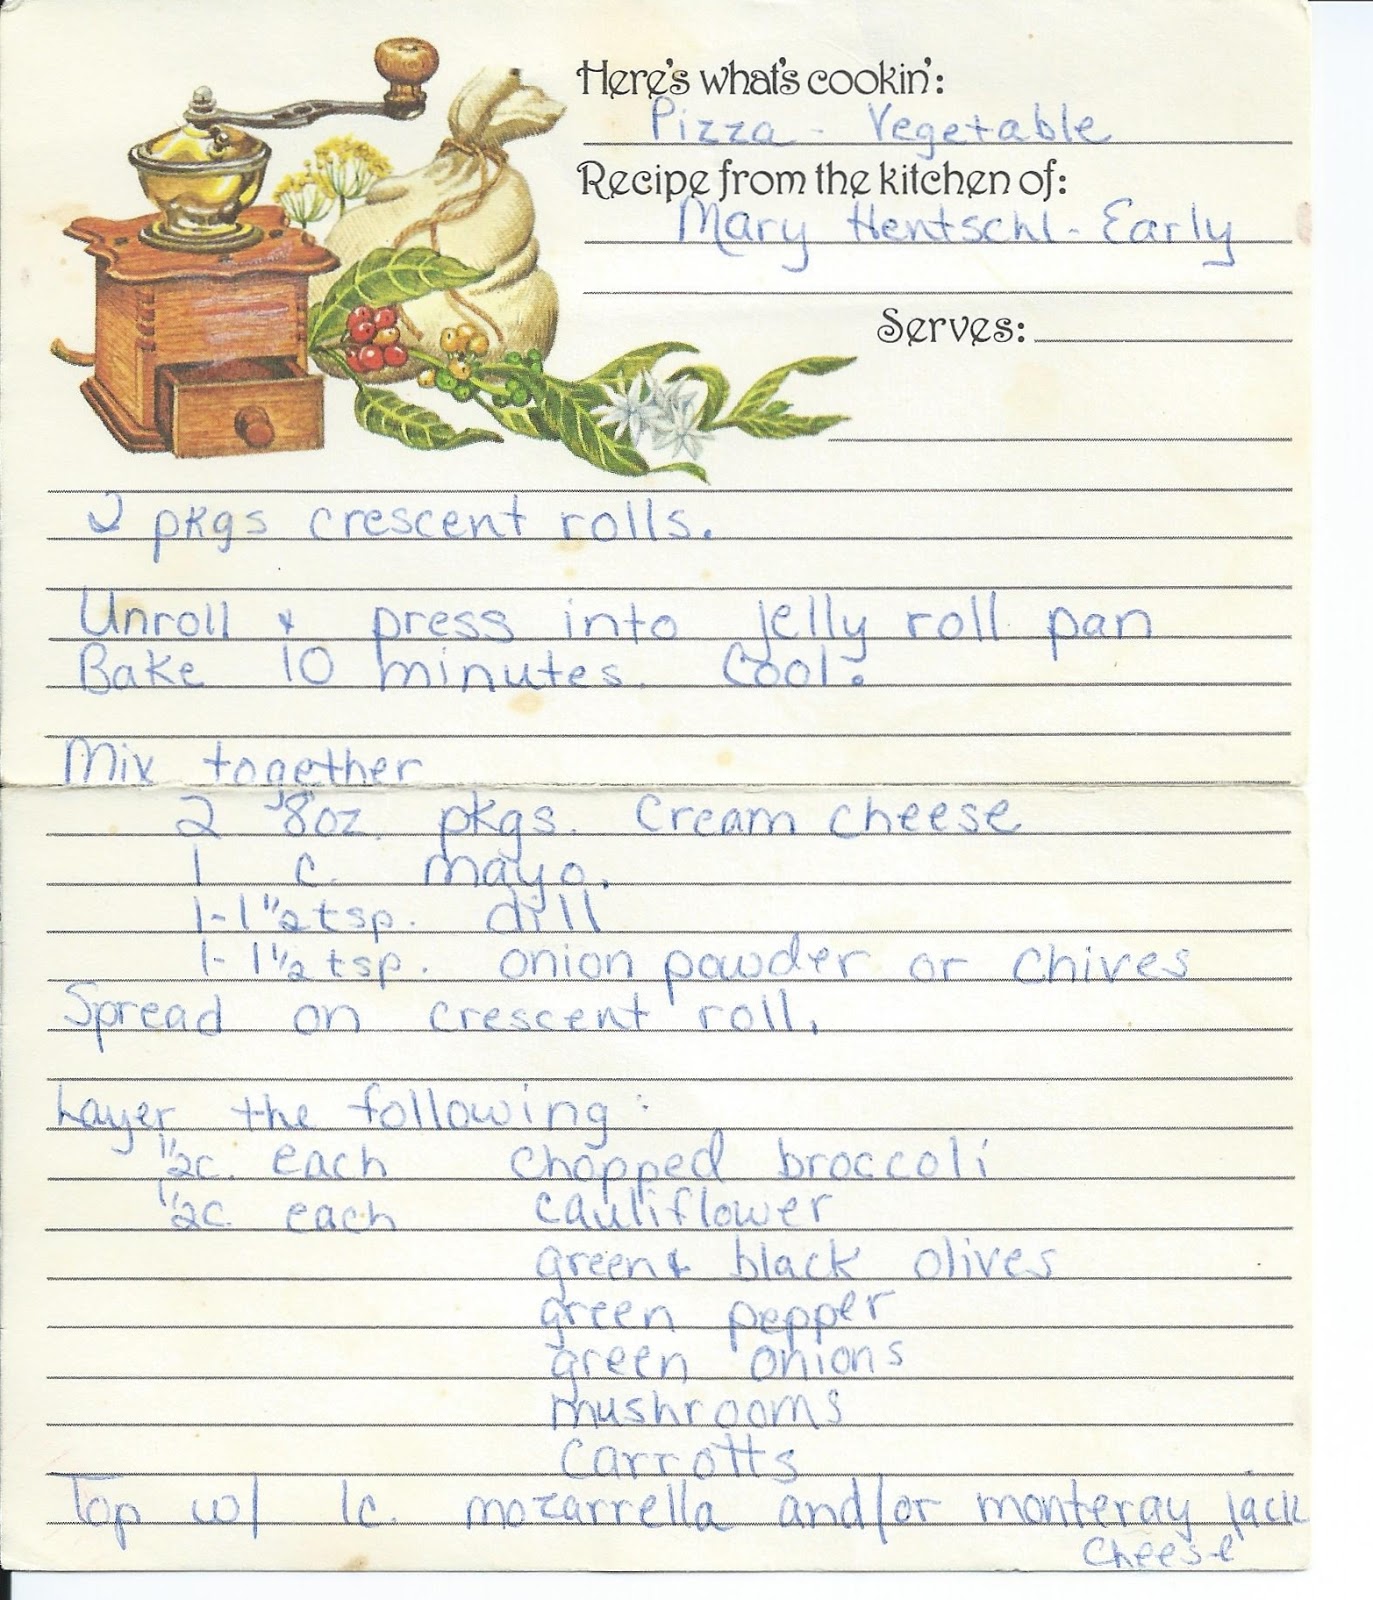 Here's what's cookin':
Pizza - Vegetable
Recipe from the kitchen of:
Mary Hentschl-Early
Serves:
2 pkgs crescent rolls.
Unroll & press into jelly roll pan
Bake 10 minutes. Cool.
Mix together
2 8oz. pkgs. Cream cheese
1 c. mayo.
1-1 1/2 tsp. dill
1-1 1/2 tsp. onion powder or chives
Spread on crescent roll.
Layer the following:
1/2c. each chopped broccoli
1/2c each cauliflower
green & black olives
green pepper
green onions
mushrooms
carrotts
Top w/ 1c. mozarrella and/or monteray jack
cheese